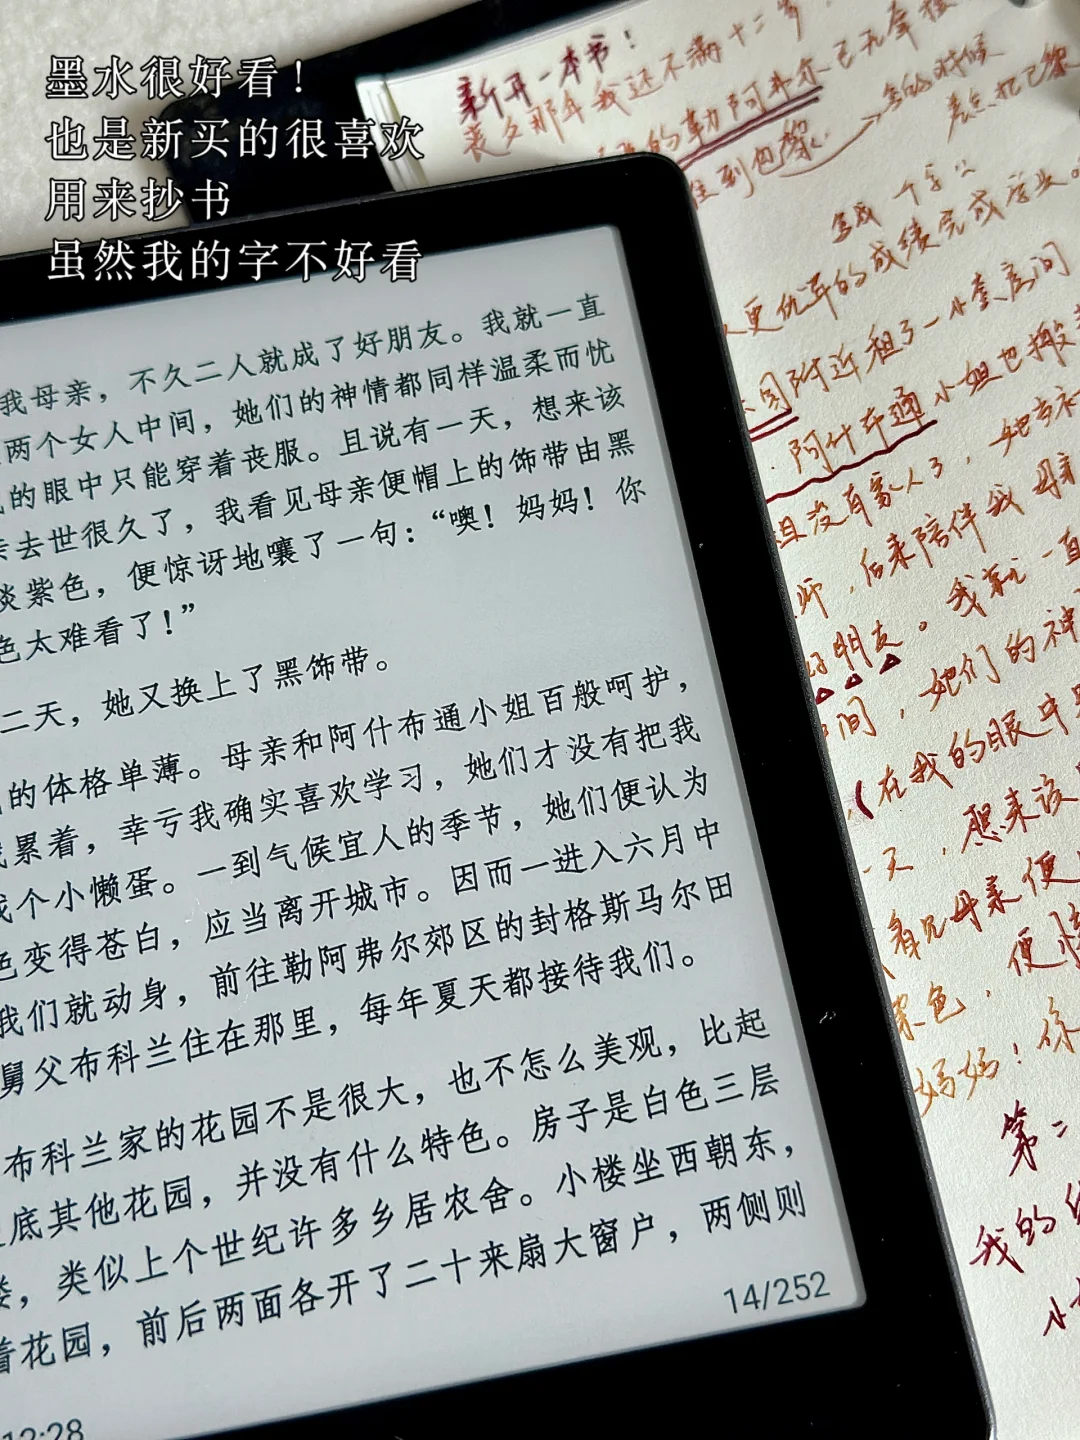 墨水很好看！
也是新买的很喜欢
用来抄书
虽然我的字不好看
我母亲，不久二人就成了好朋友。我就一直
两个女人中间，她们的神情都同样温柔而忧
的眼中只能穿着丧服。且说有一天，想来该
亲去世很久了，我看见母亲便帽上的饰带由黑
淡紫色，便惊讶地嚷了一句：“噢！妈妈！你
色太难看了！”
二天，她又换上了黑饰带。
的体格单薄。母亲和阿什布通小姐百般呵护，
累着，幸亏我确实喜欢学习，她们才没有把我
个小懒蛋。一到气候宜人的季节，她们便认为
色变得苍白，应当离开城市。因而一进入六月中
我们就动身，前往勒阿弗尔郊区的封格斯马尔田
舅父布科兰住在那里，每年夏天都接待我们。
布科兰家的花园不是很大，也不怎么美观，比起
底其他花园，并没有什么特色。房子是白色三层
楼，类似上个世纪许多乡居农舍。小楼坐西朝东，
着花园，前后两面各开了二十来扇大窗户，两侧则
14/252
12:28
新开一本书！
丧父那年我还不满十二岁
的勒阿弗尔已无牵挂
住到巴黎
写的时候
总把巴黎
写成一个字
更优异的成绩完成学业。
园附近租了一小套房间
阿什布通小姐也搬
姐没有家人了，她当初
师，后来陪伴我母亲
好朋友。我就一直
间，她们的神
（在我的眼中
一天，想来该
看见母亲便
紫色，便惊
妈妈！你
第二
我的
小